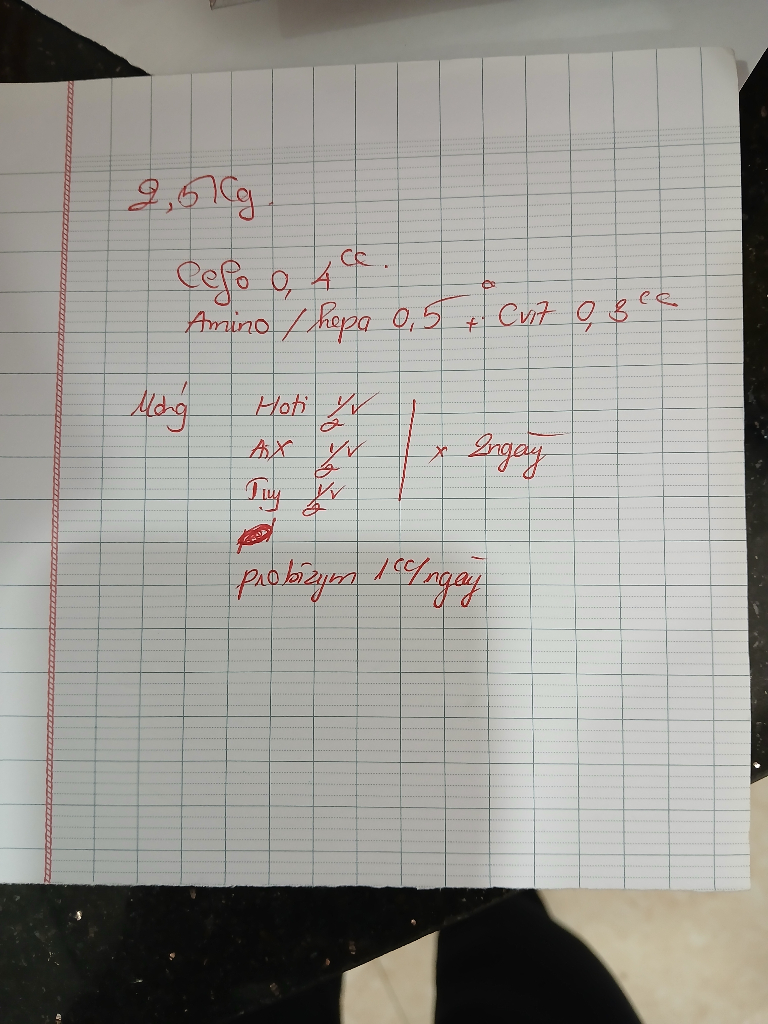 2,5 Kg.
Cefo 0,4 cc.
Amino / hepa 0,5 + Cvit 0,3 cc
Uống Hoti 1/2 v
AX 1/2 v x 2 ngày
Tuy 1/2 v
probizym 1cc/ngày